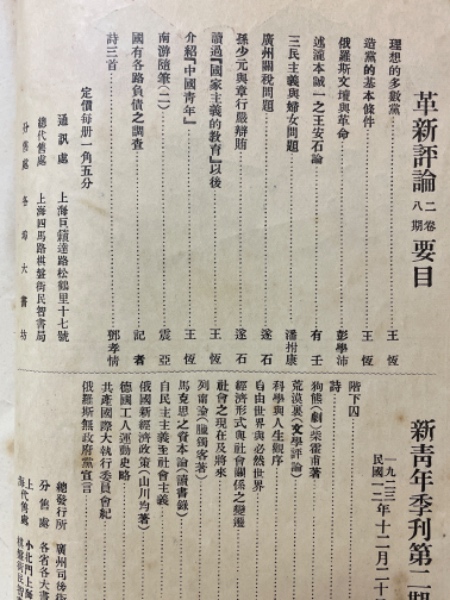 革新評論 二卷八期 要目
理想的多數黨 王恆
造黨的基本條件 王恆
俄羅斯文壇與革命 彭學沛
述瀧本誠一之王安石論 有壬
三民主義與婦女問題 潘拊康
廣州關稅問題 遂石
孫少元與章行嚴辯賄 遂石
讀過『國家主義的教育』以後 王恆
介紹『中國青年』 王恆
南游隨筆(二) 震亞
國有各路負債之調查 記者
詩三首 鄧孝情
定價每冊一角五分
通訊處 上海貝勒達路松鶴里十七號
總代售處 上海四馬路棋盤街民智書局
分售處 各埠大書坊
新青年季刊第二期
一九二三
民國一二年十二月二十
階下囚
詩
狗熊(劇)柴霍甫著
荒漠裏(文學評論)
科學與人生觀序
自由世界與必然世界
經濟形式與社會關係之變遷
社會之現在及將來
列甯論(臘獨客著)
馬克思之資本論(讀書錄)
自民主主義至社會主義
俄國新經濟政策(山川均著)
德國工人運動史略
共產國際大執行委員會紀
俄羅斯無政府黨宣言
總發行所 廣州司後街
分售處 各省各大書
上海代售處 小北門上海
棋盤街民智